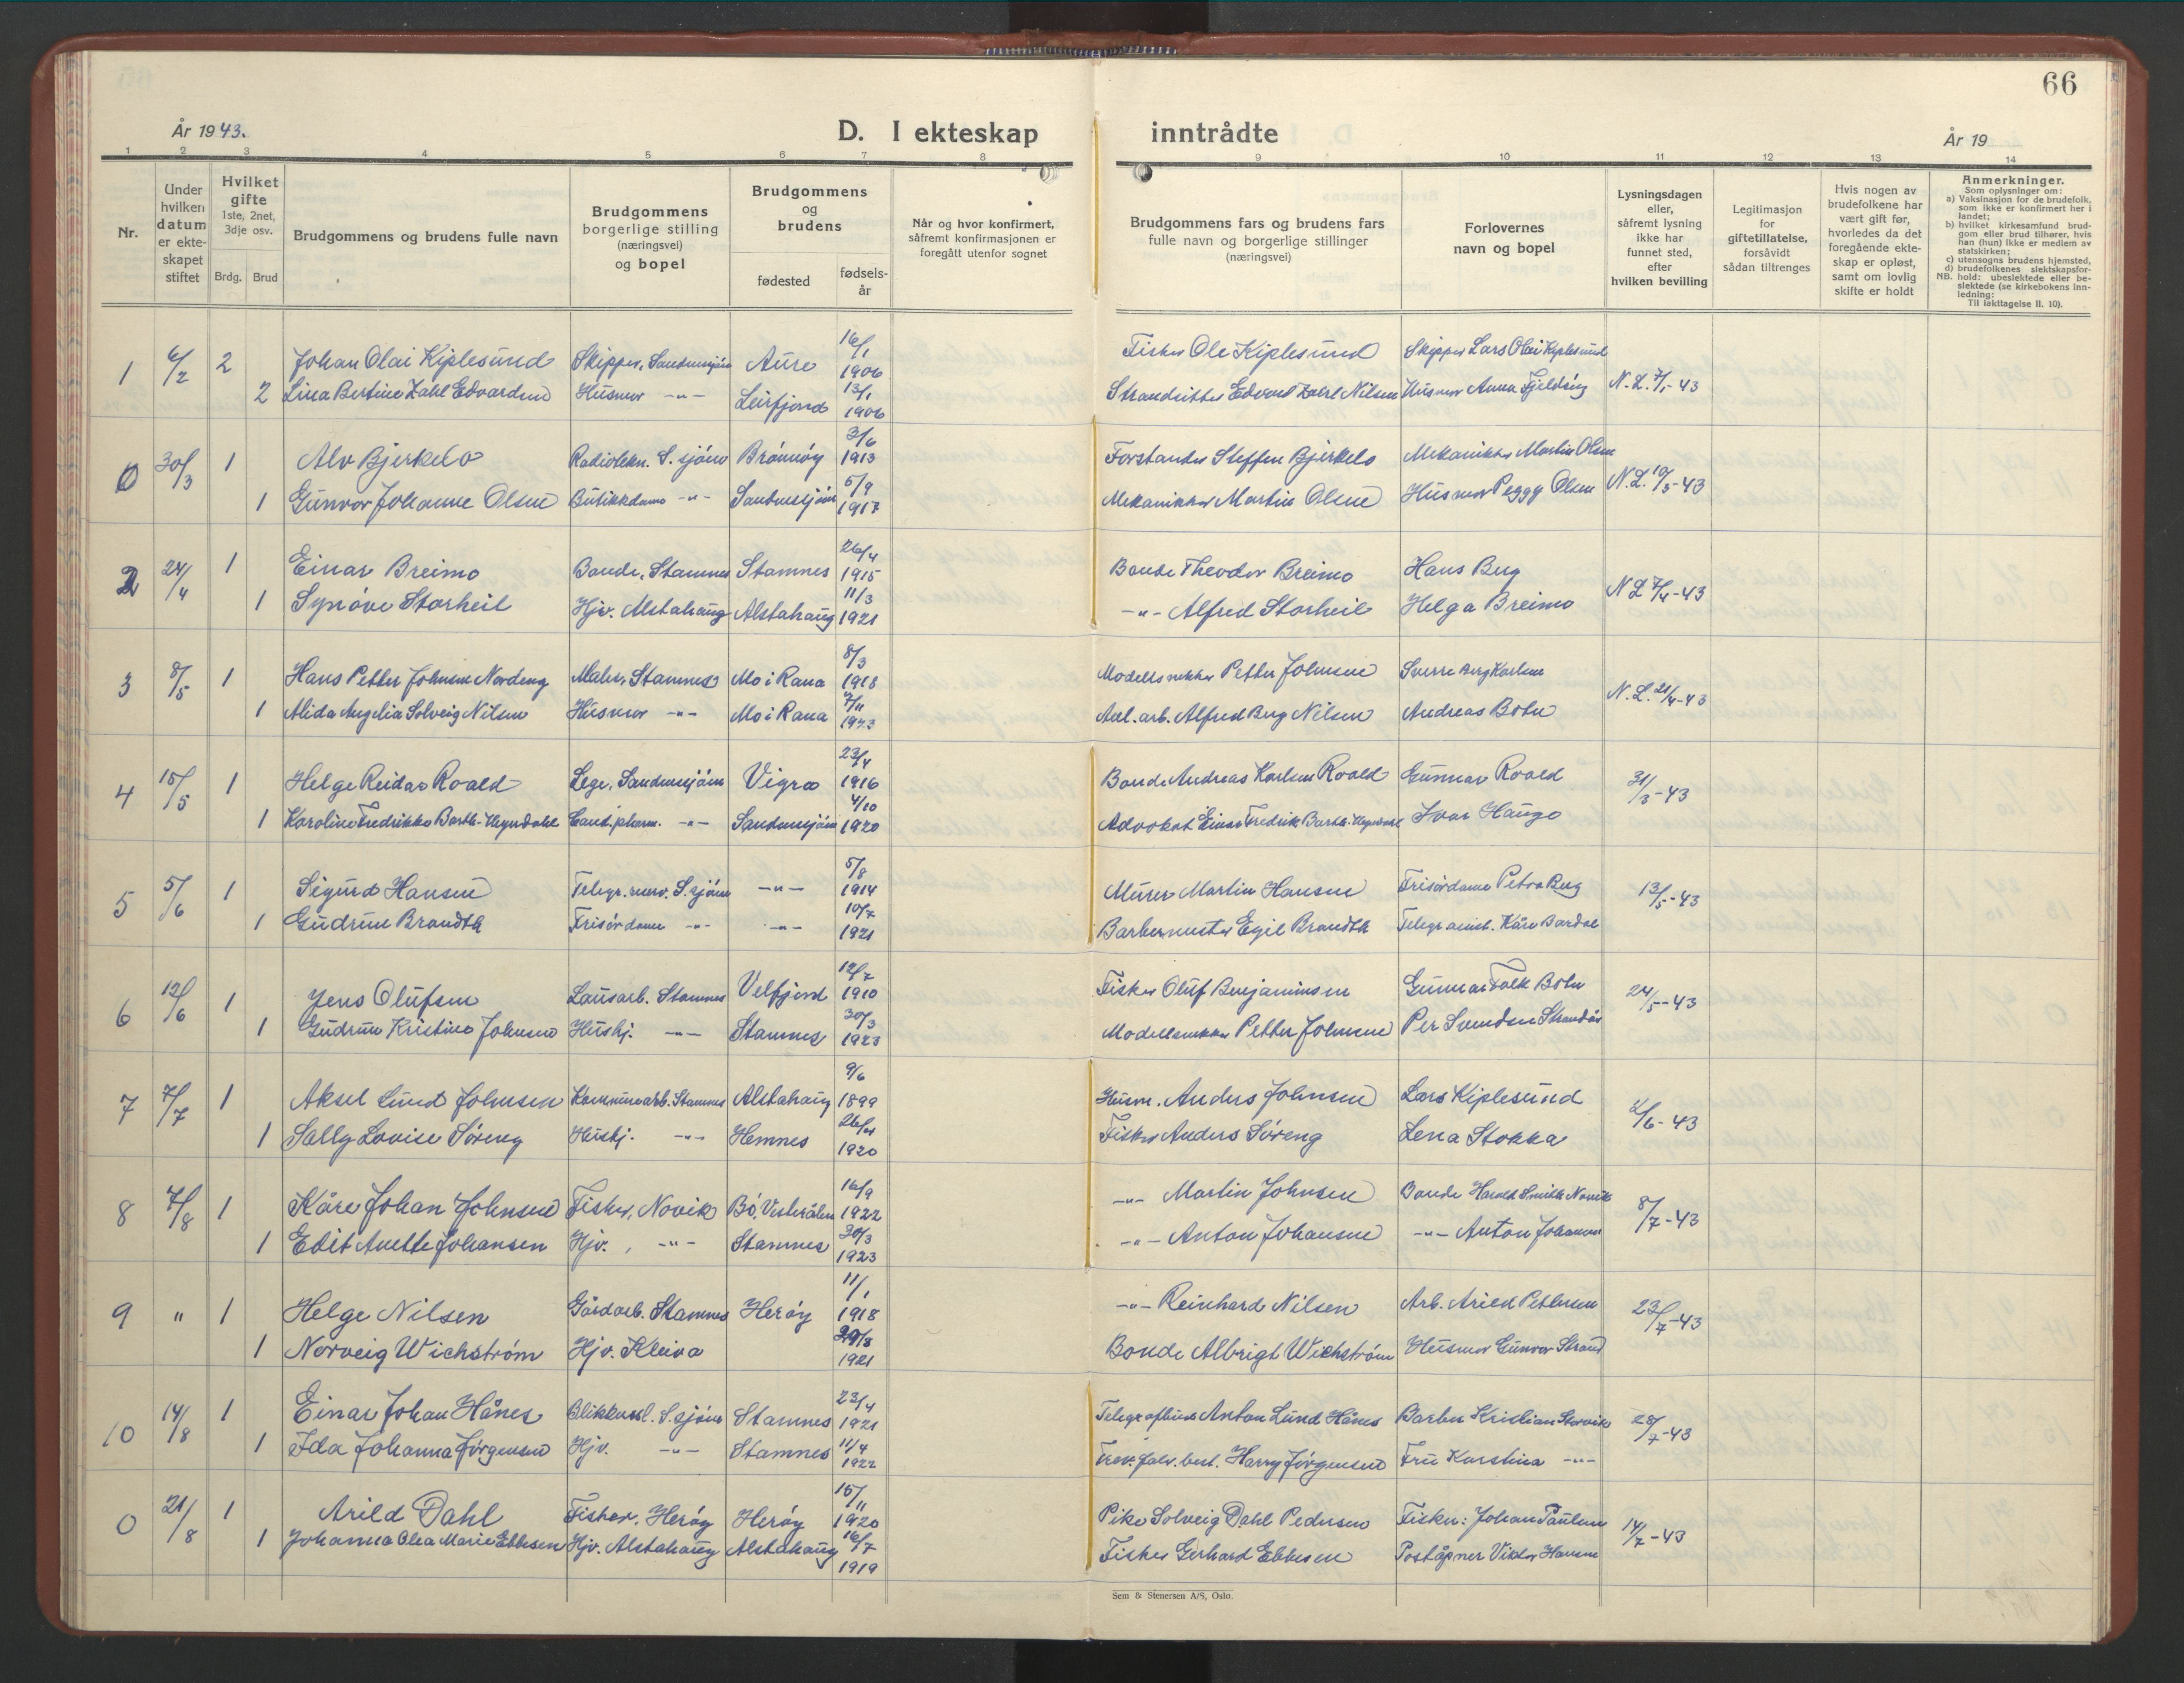 66
År 1943.
D. I ekteskap inntrådte
År 19
1 2 3 4 5 6 7 8 9 10 11 12 13 14
Nr.
Under hvilken datum er ekte-skapet stiftet
Hvilket gifte 1ste, 2net, 3dje osv.
Brdg. Brud
Brudgommens og brudens fulle navn
Brudgommens borgerlige stilling (næringsvei) og bopel
Brudgommens og brudens
fødested
fødsels-år
Når og hvor konfirmert, såfremt konfirmasjonen er foregått utenfor sognet
Brudgommens fars og brudens fars fulle navn og borgerlige stillinger (næringsvei)
Forlovernes navn og bopel
Lysningsdagen eller, såfremt lysning ikke har funnet sted, efter hvilken bevilling
Legitimasjon for giftetillatelse, forsåvidt sådan tiltrenges
Hvis nogen av brudefolkene har vært gift før, hvorledes da det foregående ekte-skap er opløst, samt om lovlig skifte er holdt
Anmerkninger.
Som oplysninger om:
a) Vaksinasjon for de brudefolk, som ikke er konfirmert her i landet;
b) hvilket kirkesamfund brud-gom eller brud tilhører, hvis han (hun) ikke er medlem av statskirken;
c) utensogns brudens hjemsted,
d) brudefolkenes slektskapsfor-hold: ubeslektede eller be-slektede (se kirkebokens inn-ledning:
NB. Til iakttagelse II. 10).
1 6/2 2 Johan Olai Kiplesund Skipper, Sandnessjøen Aure 16/1 1906 Fisker Ole Kiplesund Skipper Lars Olai Kiplesund
2 Lina Bertine Zahl Edvardsen Husmor -"- Leirfjord 13/1 1906 Strandsitter Edvard Zahl Nilsen Husmor Anna Fjeldsøy N.L. 7/1-43
0 30/3 1 Alv Bjerkelo Radiotekn. S.sjøen Brønnøy 3/6 1913 Forstander Steffen Bjerkelo Mekaniker Martin Olsen
1 Gunvor Johanne Olsen Butikkdame -"- Sandnessjøen 5/9 1917 Mekaniker Martin Olsen Husmor Peggy Olsen N.L. 10/3-43
2 24/4 1 Einar Breimo Bonde, Stamnes Stamnes 26/4 1915 Bonde Theodor Breimo Hans Berg
1 Synøve Storheil Hjv. Alstahaug Alstahaug 11/3 1921 -"- Alfred Storheil Helga Breimo N L 7/4-43
3 8/5 1 Hans Petter Johnsen Nordeng Maler, Stamnes Mo i Rana 8/3 1918 Modellsnekker Petter Johnsen Sverre Berg Karlsen
1 Alida Angelia Solveig Nilsen Husmor -"- Mo i Rana 7/11 1923 Anl.arb. Alfred Berg Nilsen Andreas Botn N.L. 21/4-43
4 15/5 1 Helge Reidar Roald Lege, Sandnessjøen Vigra 23/4 1916 Bonde Andreas Karlsen Roald Gunnar Roald
1 Karoline Fredrikke Barth-Heyerdahl Cand.pharm. -"- Sandnessjøen 4/10 1920 Advokat Einar Fredrik Barth-Heyerdahl Ivar Hauge 31/3-43
5 5/6 1 Sigurd Hansen Telegr.reserv. S.sjøen -"- 5/8 1914 Murer Martin Hansen Frisørdame Petra Berg
1 Gudrun Brandth Frisørdame -"- -"- 10/7 1921 Barbermester Egil Brandth Telegr.assist. Kåre Bardal 13/5-43
6 12/6 1 Jens Olufsen Lausarb. Stamnes Velfjord 12/7 1910 Fisker Oluf Benjaminsen Gunnar Falk Botn
1 Gudrun Kristine Johnsen Hushj. -"- Stamnes 30/3 1923 Modellsnekker Petter Johnsen Per Svendsen Strandås 24/5-43
7 7/7 1 Aksel Lund Johnsen Kommunearb. Stamnes Alstahaug 9/6 1899 Husm. Anders Johnsen Lars Kiplesund
1 Sally Lovise Søreng Hushj. -"- Hemnes 26/4 1920 Fisker Anders Søreng Lena Stokka /6-43
8 7/8 1 Kåre Johan Johnsen Fisker, Novik Bø, Vesterålen 16/9 1922 -"- Martin Johnsen Bonde Harald Smith Novik
1 Edit Anette Johansen Hjv., -"- Stamnes 30/3 1923 -"- Anton Johansen -"- Anton Johansen 8/7-43
9 " 1 Helge Nilsen Gårdarb. Stamnes Herøy 11/1 1918 -"- Reinhard Nilsen Arb. Arild Pettersen
1 Norveig Wichstrøm Hjv. Kleiva /3 1921 Bonde Albrigt Wichstrøm Husmor Gunvor Strand 23/7-43
10 14/8 1 Einar Johan Hånes Blikkensl. S.sjøen Stamnes 23/4 1921 Telegrafbud Anton Lund Hånes Barber Kristian Storvik
1 Ida Johanna Jørgensen Hjv. -"- Stamnes 11/4 1922 Trev.falv.best. Harry Jørgensen Fru Karstina -"- 28/7-43
0 21/8 1 Arild Dahl Fisker, Herøy Herøy 15/11 1920 Pike Solveig Dahl Pedersen Fisker: Johan Paulsen
1 Johanna Olea Marie Ebbesen Hjv. Alstahaug Alstahaug 16/7 1919 Fisker Gerhard Ebbesen Poståpner Viktor Hansen 14/7-43
Sem & Stenersen A/S, Oslo.